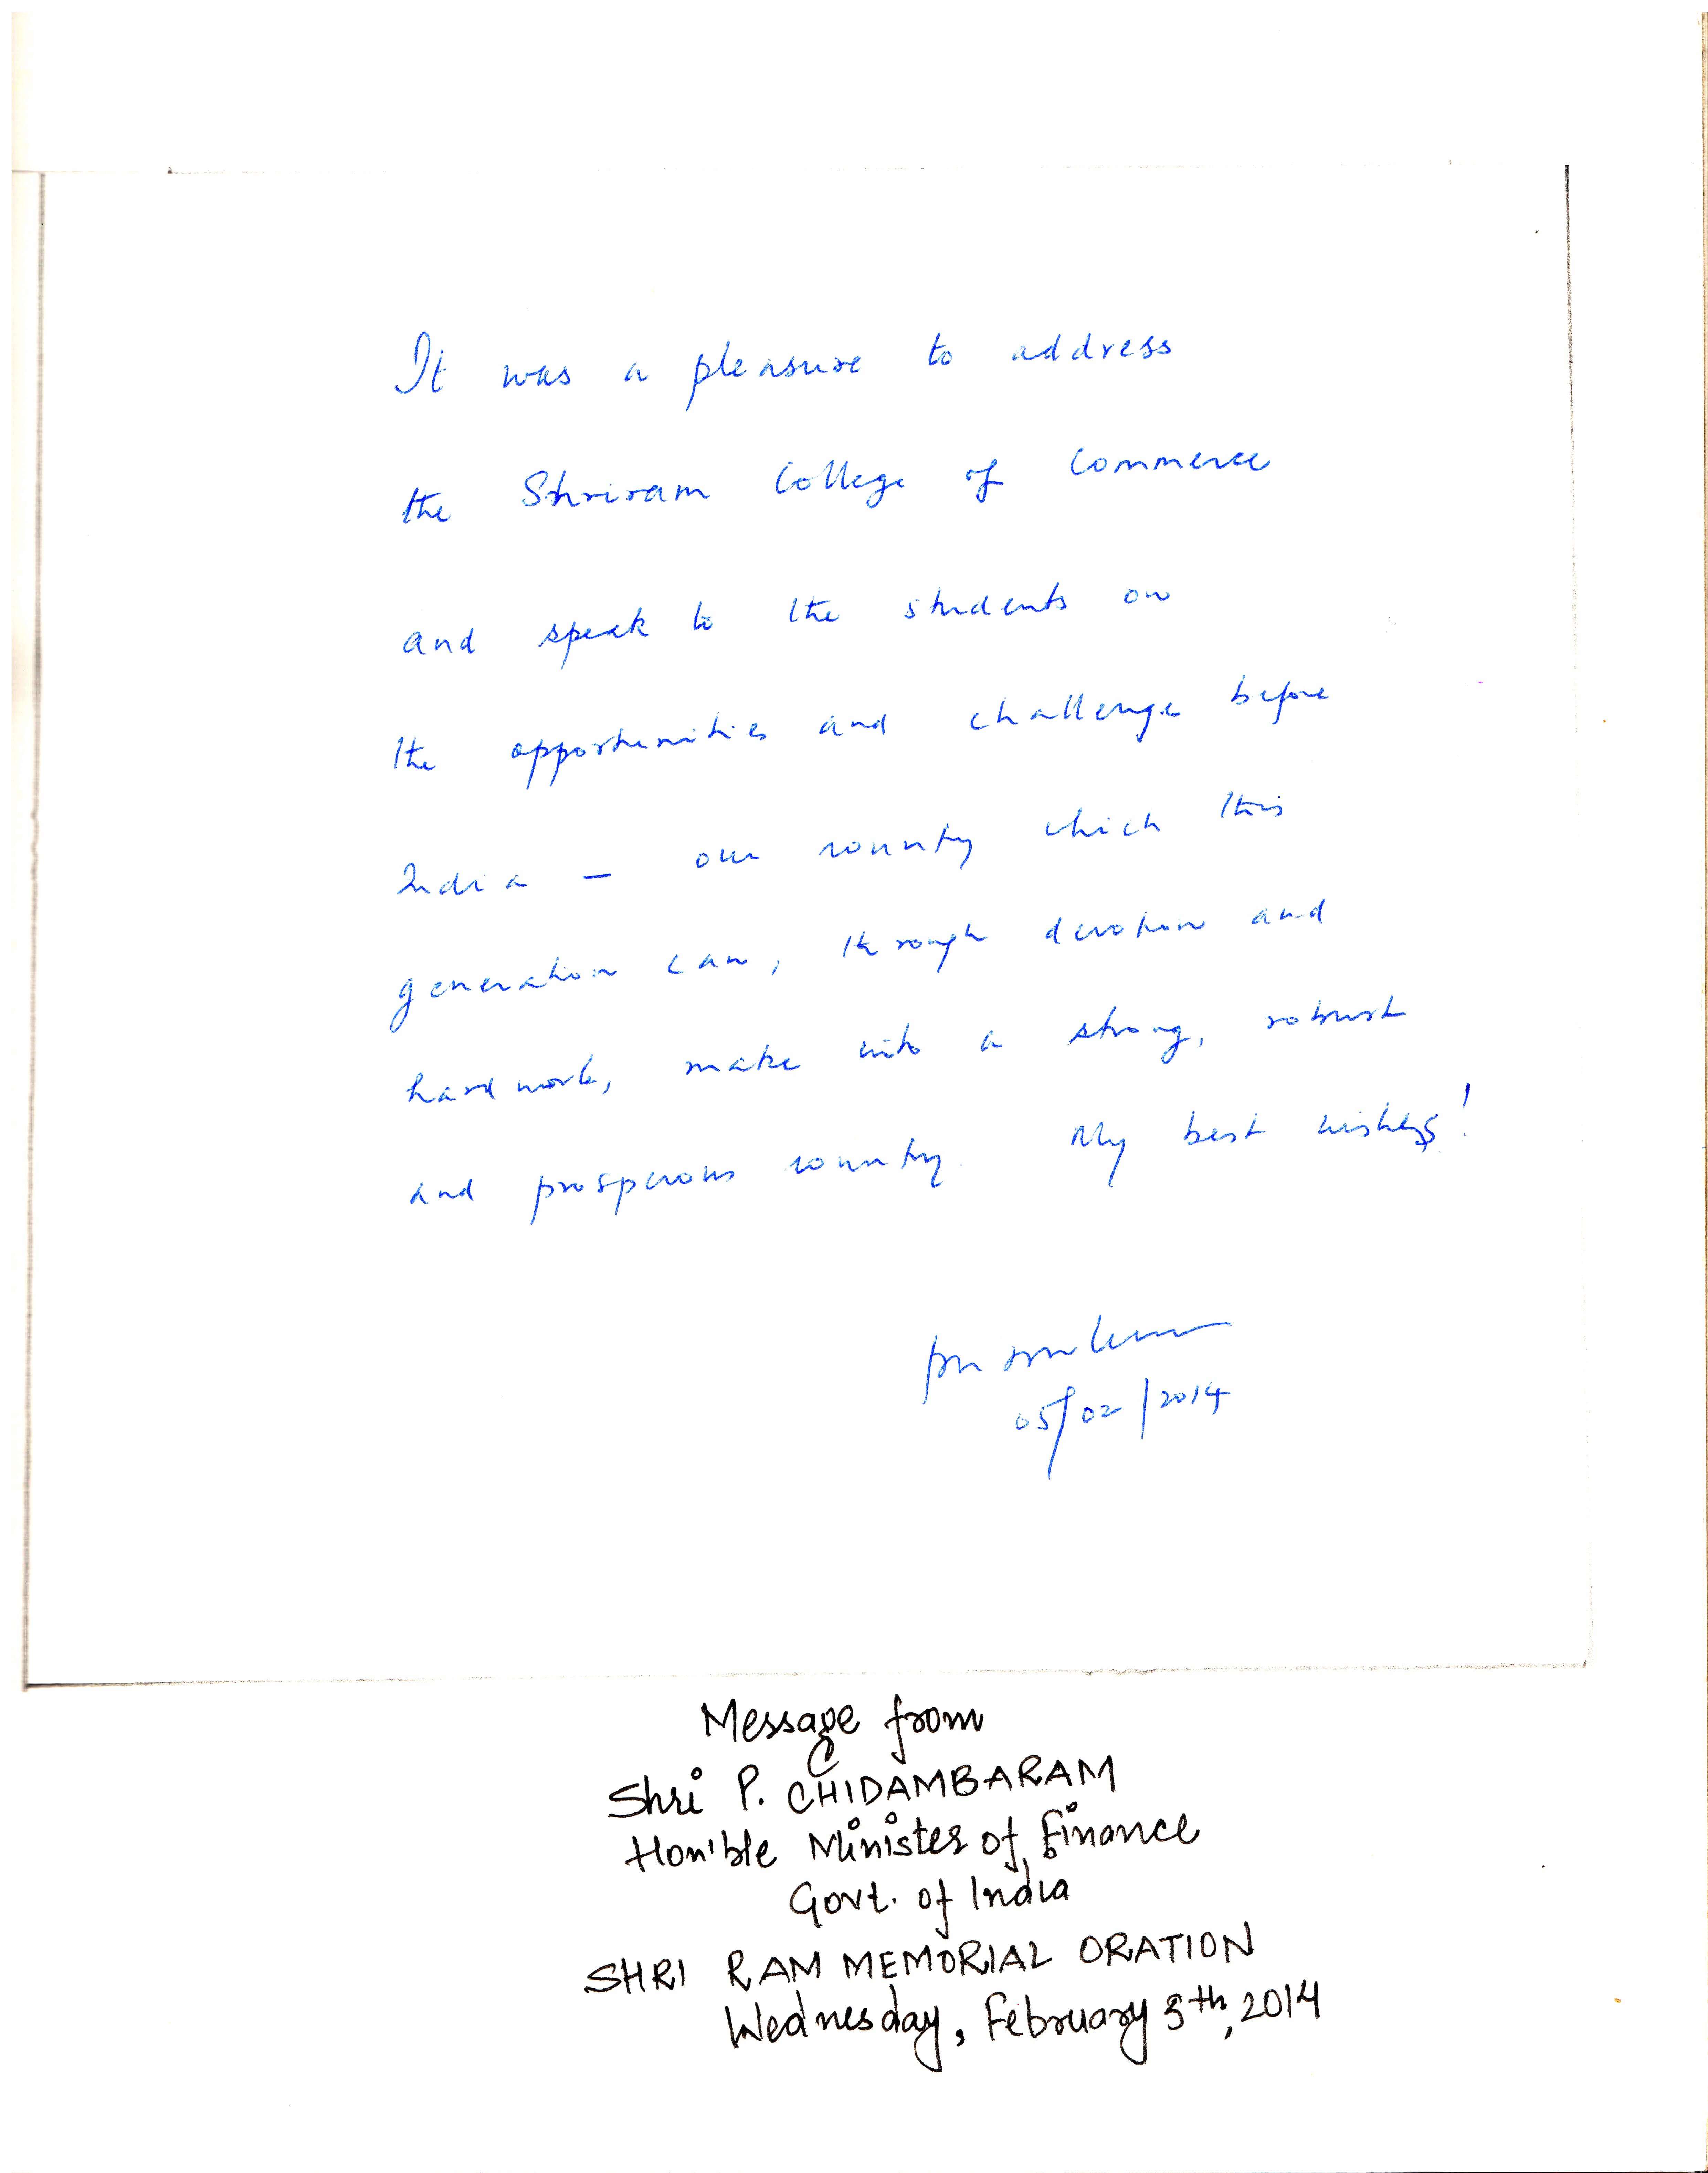 It was a pleasure to address
the Shriram College of Commerce
and speak to the students on
the opportunities and challenge before
India – our country which this
generation can, through devotion and
hardwork, make into a strong, robust
and prosperous country. My best wishes!
05/02/2014
Message from
Shri P. CHIDAMBARAM
Hon'ble Minister of Finance
Govt. of India
SHRI RAM MEMORIAL ORATION
Wednesday, February 5th, 2014